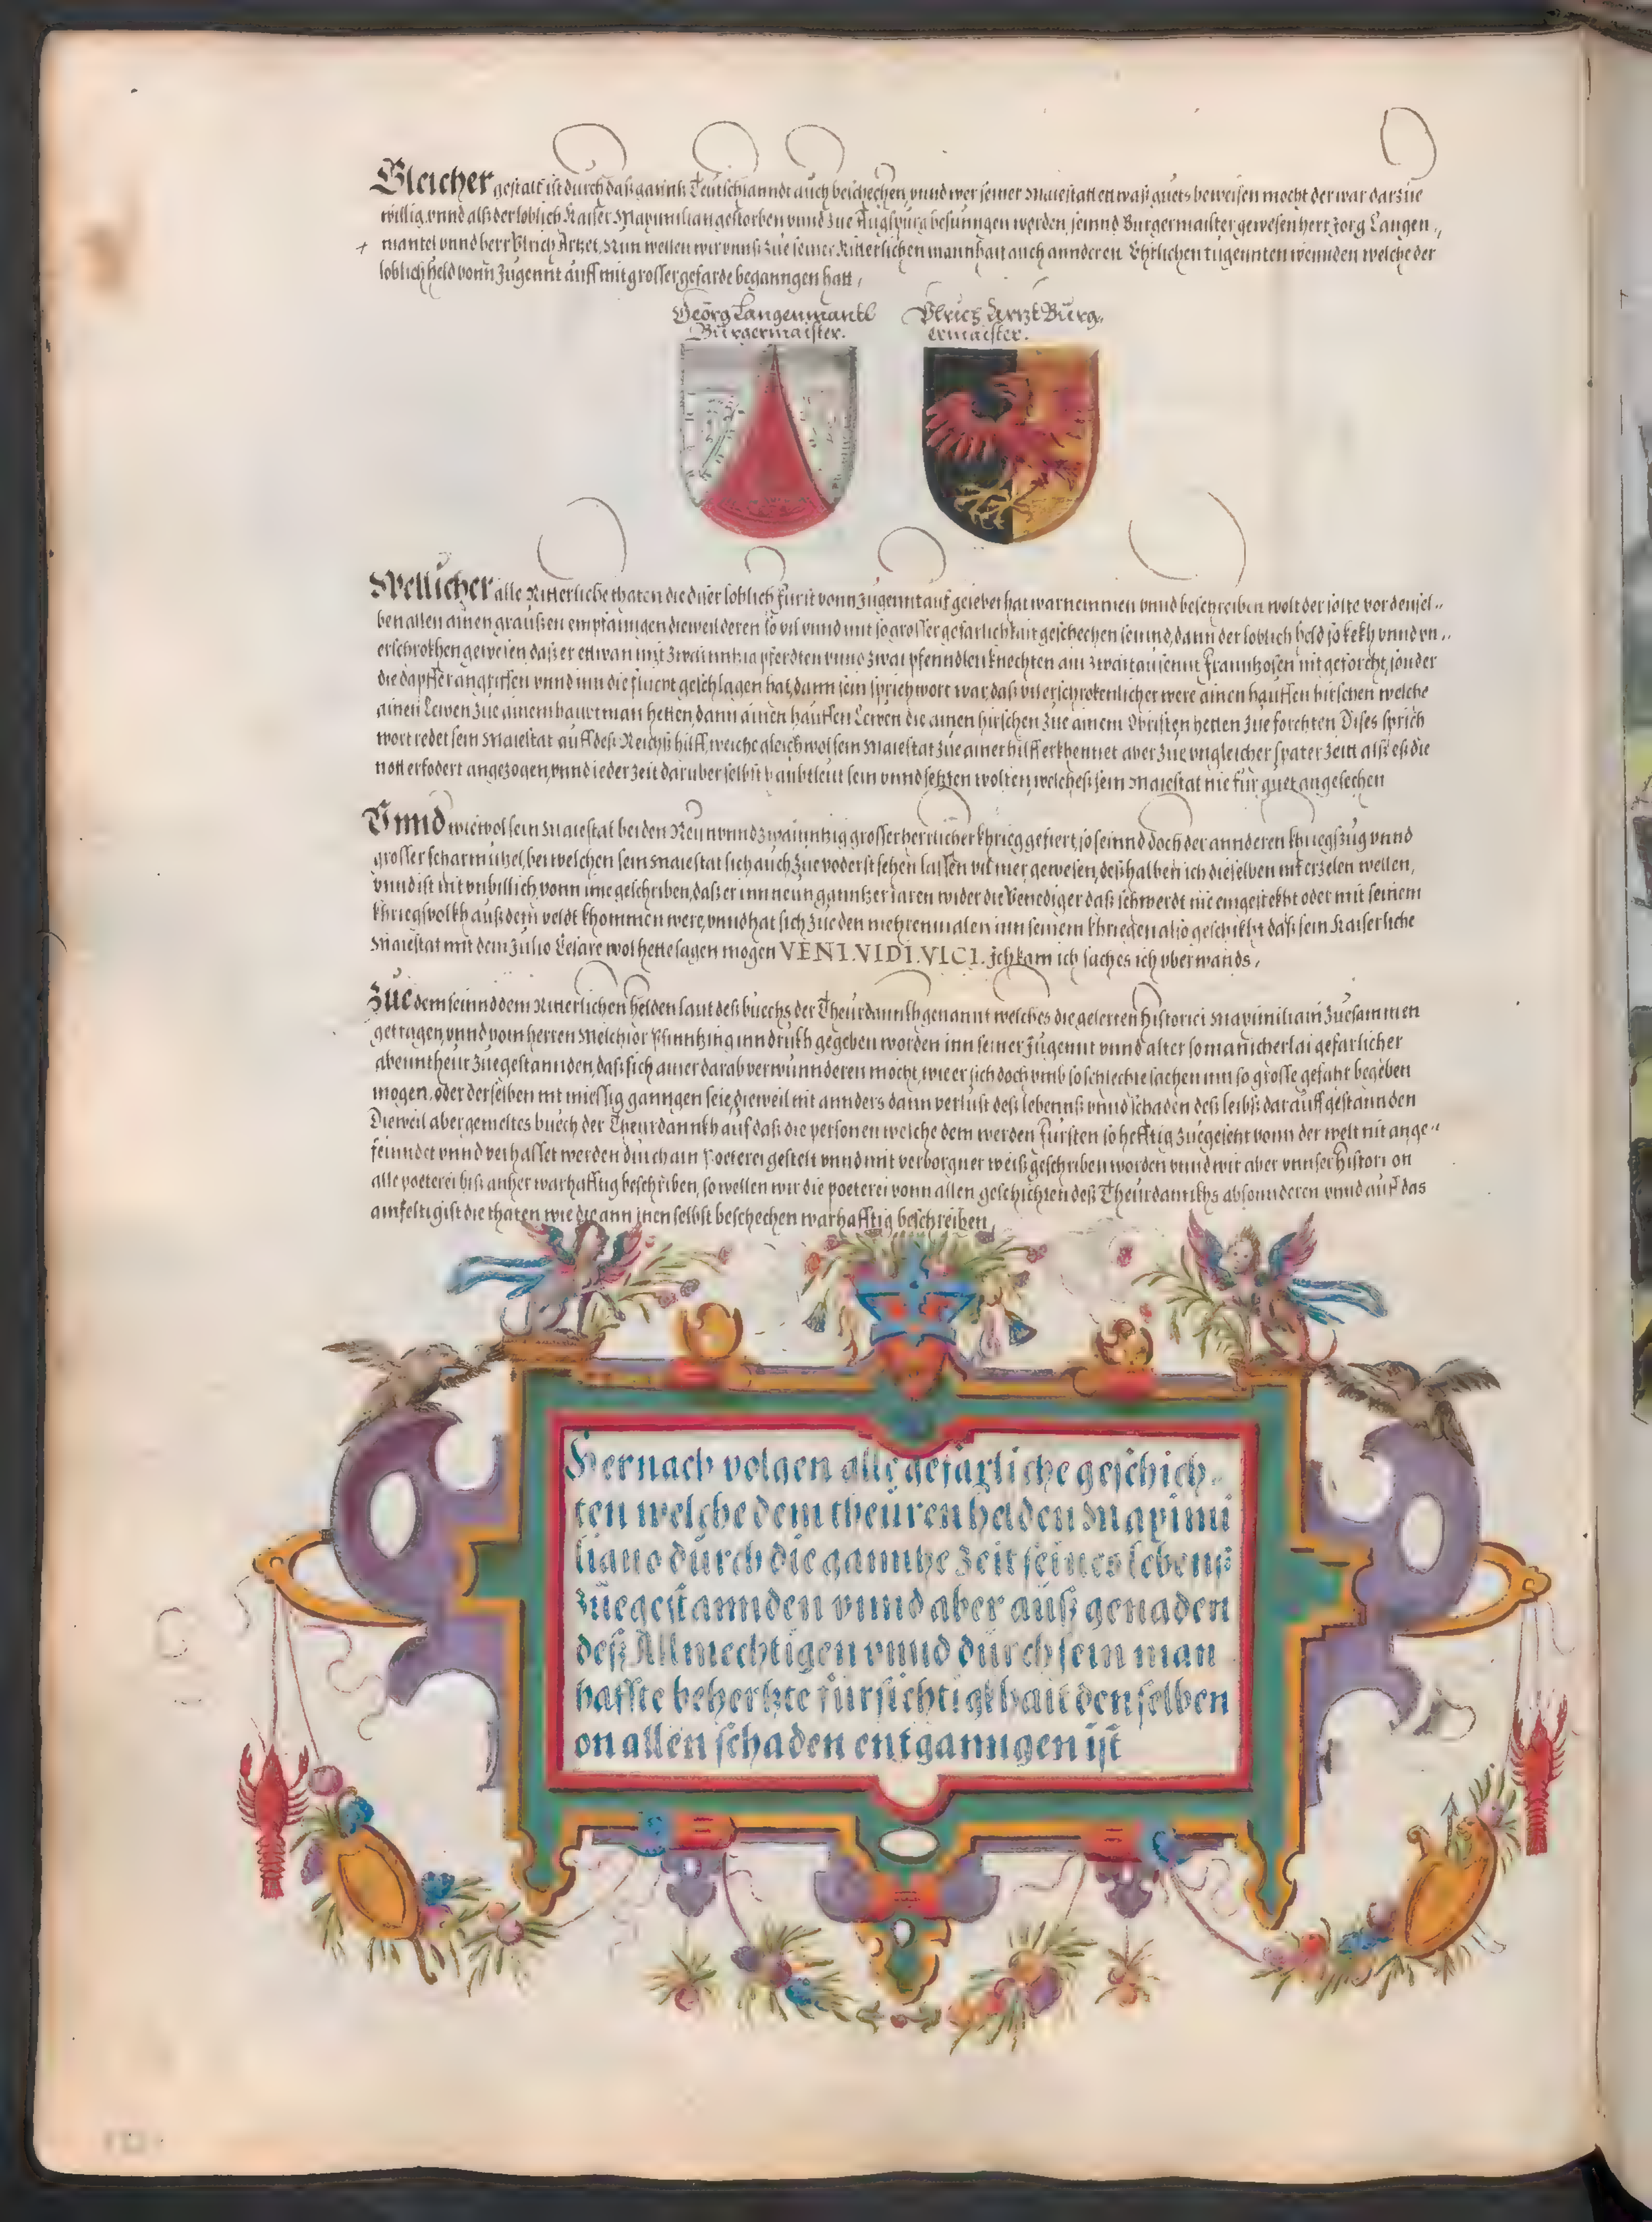 Gleicher gestalt ist durch daß ganntz Teutschlanndt auch beschechen, vnnd wer seiner Maiestatt ettwaß guets beweisen mocht der war darzue
willig, vnnd alß der loblich Kaiser Maximilian gestorben vnnd zue Augspurg besunngen worden, seinnd Burgermaister gewesen herr Jorg Langen
mantel vnnd herr Vlrich Artzet, Nun wellen wir vnnß zue seiner Ritterlichen mannhait auch annderen Ehrlichen tugennten wennden welche der
loblich held vonn Jugennt auff mit grosser gefarde beganngen hatt,
Georg Langenmantl
Burgermaister.
Vlrich Artzt Burg
ermaister.
Wellicher alle Ritterliche thaten die diser loblich furst vonn Jugennt auf geiebet hat warnemmen vnnd beschreiben wolt der solte vor densel
ben allen ainen graußen empfanngen dieweil deren so vil vnnd mit so grosser gefarlichkait geschechen seinnd, dann der loblich held so kekh vnnd vn
erschrokhen gewesen daß er ettwan mit zwainntzig pferdten vnnd zwai pfenndlen knechten ain zwaitausennt Frannhosen nit geforcht, sonder
die dapffer angriffen vnnd inn die flucht geschlagen hat, dann sein sprichwort war, daß vil erschrokenlicher were ainen hauffen hirschen welche
ainen Lewen zue ainem haubtman hetten dann ainen hauffen Lewen die ainen hirschen zue ainem Obristen hetten zue forchten Dises sprich
wort redet sein Maiestat auff deß Reichß hilff, welche gleich wol sein Maiestat zue ainer hilff erkhennet aber zue vngleicher spater zeitt alß es die
nott erfodert angezogen, vnnd ieder zeit daruber selbst haubtleut sein vnnd setzen wolten, welcheß sein Maiestat nie fur guet angesechen
Vnnd wiewol sein Maiestat bei den Neun vnnd zwainntzig grosser herrlicher khrieg gefiert, so seinnd doch der annderen khriegszug vnnd
grosser scharmutzel, bei welchen sein Maiestat sich auch zue voderst sehen lassen vil mer gewesen, deßhalben ich dieselben nit erzelen wellen,
vnnd ist nit vnbillich vonn ime geschriben, daß er inn neun ganntzer iaren wider die Venediger daß schwerdt nie eingestekht oder mit seinem
khriegsvolkh auß dem veldt khommen were, vnnd hat sich zue den mehren malen inn seinem khriegen also geschikht daß sein Kaiserliche
Maiestat mit dem Julio Cesare wol hette sagen mogen VENI. VIDI. VICI. Ich kam ich sach es ich vberwands,
Zue dem seinnd dem Ritterlichen helden laut deß buechs der Theurdannkh genannt welches die gelerten Historici Maximiliani zuesammen
getragen, vnnd vom herren Melchior Pfinntzing inn drukh gegeben worden inn seiner Jugennt vnnd alter so manicherlai gefarlicher
abenntheur zuegestannden, daß sich ainer darab verwunnderen mocht, wie er sich doch vmb so schlechte sachen inn so grosse gefahr begeben
mogen, oder derselben nit miessig ganngen seie, dieweil nit annders dann verlust deß lebennß vnnd schaden deß leibß darauff gestannden
Dieweil aber gemeltes buech der Theurdannkh auf daß die personen welche dem werden Fursten so hefftig zuegesetzt vonn der welt nit ange
feinndet vnnd verhasset werden durch ain Poeterei gestelt vnnd mit verborgner weiß geschriben worden vnnd wir aber vnnser Histori on
alle poeterei biß anher warhafftig beschriben, so wellen wir die poeterei vonn allen geschichten deß Theurdannkhs absonnderen vnnd auf das
ainfeltigist die thaten wie die ann inen selbst beschechen warhafftig beschreiben,
Hernach volgen alle gefarliche geschich
ten welche dem theuren helden Maximi
liano durch die ganntze zeit seines lebenß
zuegestannden vnnd aber auß genaden
deß Allmechtigen vnnd durch sein man
haffte behertzte fursichtigkhait denselben
on allen schaden entganngen ist